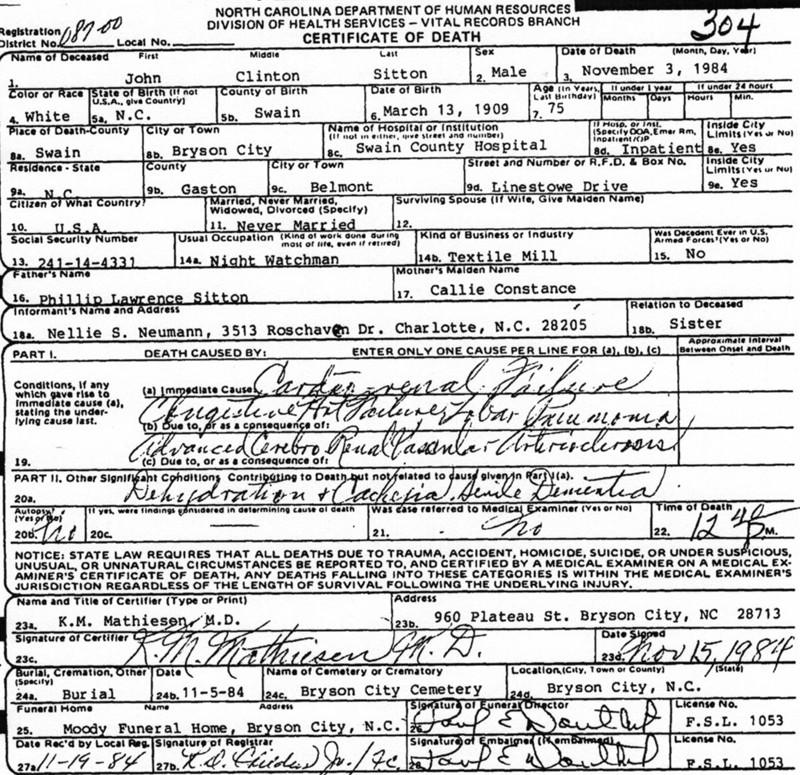 NORTH CAROLINA DEPARTMENT OF HUMAN RESOURCES
DIVISION OF HEALTH SERVICES - VITAL RECORDS BRANCH
CERTIFICATE OF DEATH
304
Registration District No. 087-00 Local No.
Name of Deceased First Middle Last Sex Date of Death (Month, Day, Year)
1. John Clinton Sitton 2. Male 3. November 3, 1984
Color or Race State of Birth (If not U.S.A., give Country) County of Birth Date of Birth Age (In Years, Last Birthday) If under 1 year Months Days If under 24 hours Hours Min.
4. White 5a. N.C. 5b. Swain 6. March 13, 1909 7. 75
Place of Death-County City or Town Name of Hospital or Institution (If not in either, give street and number) If Hosp. or Inst. (Specify DOA, Emer Rm, Inpatient/OP Inside City Limits (Yes or No)
8a. Swain 8b. Bryson City 8c. Swain County Hospital 8d. Inpatient 8e. Yes
Residence - State County City or Town Street and Number or R.F.D. & Box No. Inside City Limits (Yes or No)
9a. N.C. 9b. Gaston 9c. Belmont 9d. Linestowe Drive 9e. Yes
Citizen of What Country? Married, Never Married, Widowed, Divorced (Specify) Surviving Spouse (If Wife, Give Maiden Name)
10. U.S.A. 11. Never Married 12.
Social Security Number Usual Occupation (Kind of work done during most of life, even if retired) Kind of Business or Industry Was Decedent Ever in U.S. Armed Forces? (Yes or No)
13. 241-14-4331 14a. Night Watchman 14b. Textile Mill 15. No
Father's Name Mother's Maiden Name
16. Phillip Lawrence Sitton 17. Callie Constance
Informant's Name and Address Relation to Deceased
18a. Nellie S. Neumann, 3513 Roschaven Dr. Charlotte, N.C. 28205 18b. Sister
PART I. DEATH CAUSED BY: ENTER ONLY ONE CAUSE PER LINE FOR (a), (b), (c) Approximate Interval Between Onset and Death
Conditions, if any which gave rise to immediate cause (a), stating the underlying cause last.
(a) Immediate Cause Cardio-renal Failure
Congestive Hrt Failure, Lobar Pneumonia
(b) Due to, or as a consequence of:
Advanced Cerebro Renal Vascular Arteriosclerosis
19. (c) Due to, or as a consequence of:
PART II. Other Significant Conditions Contributing to Death but not related to cause given in Part I(a).
20a. Dehydration & Cachexia, Senile Dementia
Autopsy? (Yes or No) If yes, were findings considered in determining cause of death Was case referred to Medical Examiner (Yes or No) Time of Death
20b. No 20c. 21. No 22. 12 40 P M.
NOTICE: STATE LAW REQUIRES THAT ALL DEATHS DUE TO TRAUMA, ACCIDENT, HOMICIDE, SUICIDE, OR UNDER SUSPICIOUS,
UNUSUAL, OR UNNATURAL CIRCUMSTANCES BE REPORTED TO, AND CERTIFIED BY A MEDICAL EXAMINER ON A MEDICAL EX-
AMINER'S CERTIFICATE OF DEATH. ANY DEATHS FALLING INTO THESE CATEGORIES IS WITHIN THE MEDICAL EXAMINER'S
JURISDICTION REGARDLESS OF THE LENGTH OF SURVIVAL FOLLOWING THE UNDERLYING INJURY.
Name and Title of Certifier (Type or Print) Address
23a. K.M. Mathiesen, M.D. 23b. 960 Plateau St. Bryson City, NC 28713
Signature of Certifier Date Signed
23c. K.M. Mathiesen M.D. 23d. Nov 15, 1984
Burial, Cremation, Other (Specify) Date Name of Cemetery or Crematory Location (City, Town or County) (State)
24a. Burial 24b. 11-5-84 24c. Bryson City Cemetery 24d. Bryson City, N.C.
Funeral Home Name Address Signature of Funeral Director License No.
25. Moody Funeral Home, Bryson City, N.C. 26. F.S.L. 1053
Date Rec'd by Local Reg. Signature of Registrar Signature of Embalmer (If embalmed) License No.
27a. 11-19-84 27b. 28. F.S.L. 1053